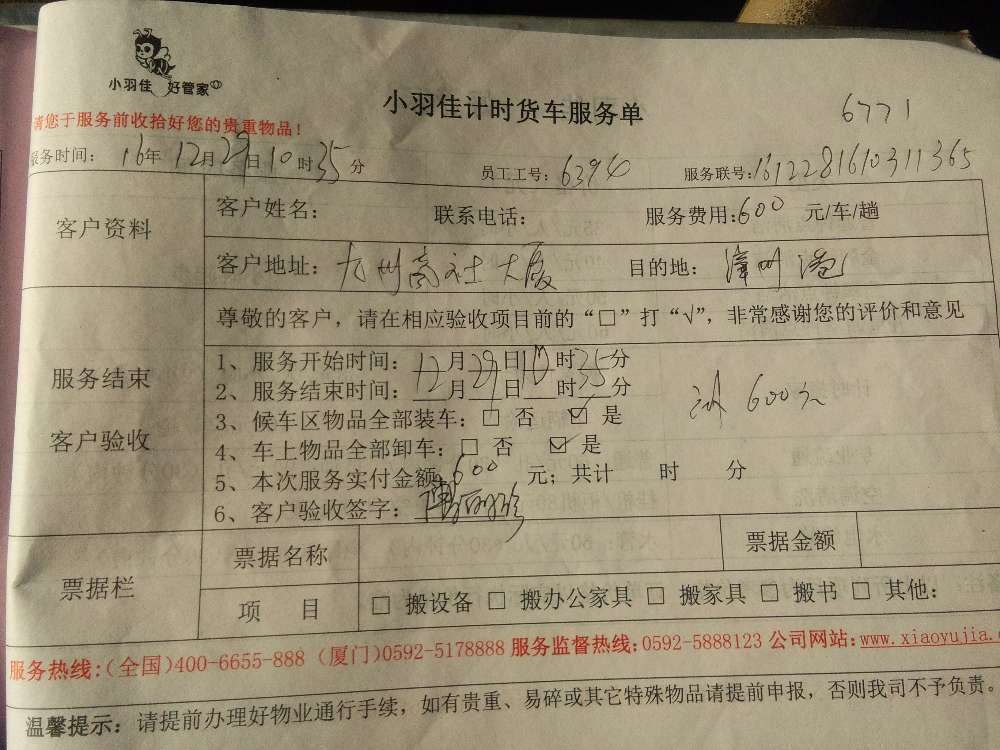 小羽佳 好管家
小羽佳计时货车服务单
6771
请您于服务前收拾好您的贵重物品！
服务时间： 16年 12月 29日 10时 35分 员工工号：6394 服务联号：161228161031 1365
客户资料
客户姓名： 联系电话： 服务费用：600 元/车/趟
客户地址：九州商社大厦 目的地：漳州港
尊敬的客户，请在相应验收项目前的“□”打“√”，非常感谢您的评价和意见
服务结束
客户验收
1、服务开始时间：12月29日10时35分
2、服务结束时间：12月29日 时35分
3、候车区物品全部装车：□ 否 ☑ 是
600元
4、车上物品全部卸车：□ 否 ☑ 是
5、本次服务实付金额：600 元；共计 时 分
6、客户验收签字：
票据栏
票据名称 票据金额
项 目 □ 搬设备 □ 搬办公家具 □ 搬家具 □ 搬书 □ 其他：
服务热线：（全国）400-6655-888（厦门）0592-5178888 服务监督热线：0592-5888123 公司网站：www.xiaoyujia.
温馨提示：请提前办理好物业通行手续，如有贵重、易碎或其它特殊物品请提前申报，否则我司不予负责。